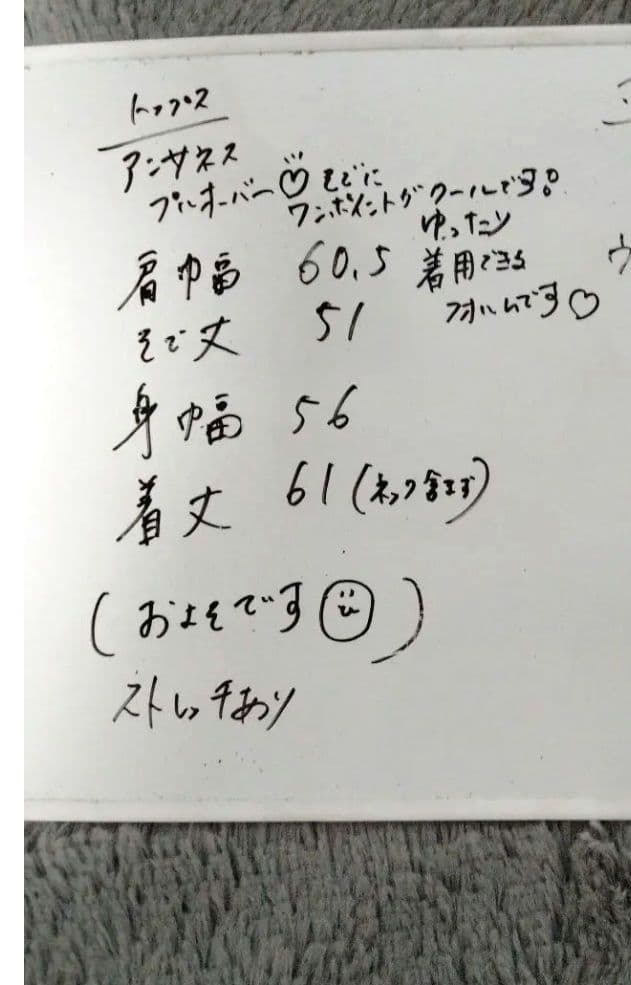 トップス
アンサネス
プルオーバー♡そでに
ワンポイントがクールです!
ゆったり
着用できる
フォルムです♡
肩巾幅 60.5
そで丈 51
身巾幅 56
着丈 61(ネック含まず)
(およそです☺)
ストレッチあり